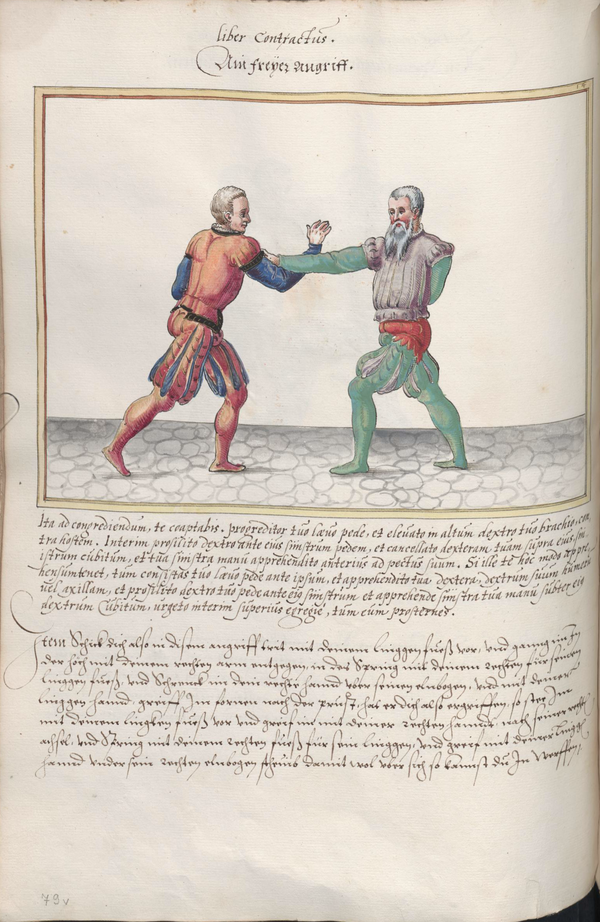 liber Contractus.
Ain freyer angriff.
Ita ad congrediendum, te coaptabis. progreditor tuo laevo pede, et elevato in altum dextro tuo brachio, con
tra hostem. Interim prosilito dextro ante eius sinistrum pedem, et cancellato dexteram tuam supra eius sin
istrum cubitum, et tua sinistra manu apprehendito anterius ad pectus suum. Si ille te hoc modo appre
hensum tenet, tum consistas tuo laevo pede ante ipsum, et apprehendito tua dextera, dextrum suum humerum
vel axillam, et prosilito dextro tuo pede ante eius sinistrum et apprehende sinistra tua manu subter eius
dextrum Cubitum, urgeto interim superius egregie, tum eum prosternes.
Item Schick dich also in disem angriff trit mit deinem linggen fuess vor, und gang im In
der höch mit deinem rechten arm entgegen, in das Spring mit deinem rechten für seinen
linggen fuess, und Schrenck im dein rechte hannd uber seinen elnbogen, und mit deiner
linggen hannd, greiff Im fornen nach der prust, hat er dich also ergriffen, so stee Im
mit deinem linggen fuess vor und greif im mit deiner rechten hannd, nach seiner rechten
achsel, und Spring mit deinem rechten fuess für sein linggen, und greif mit deiner lingg
hannd under sein rechten elnbogen scheub damit wol uber sich so kanst du In werffen,
79v